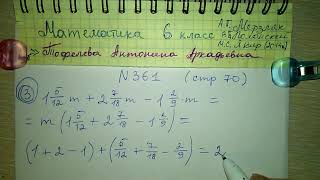 Математика 6 класс
А.Г. Мерзляк
В.Б. Полонский
М.С. Якир (2014г)
Тофелева Антонина Аркадьевна
N361 (стр 70)
③ 1 5/12 m + 2 7/18 m - 1 2/9 · m =
= m (1 5/12 + 2 7/18 - 1 2/9) =
(1 + 2 - 1) + (5/12 + 7/18 - 2/9) = 2